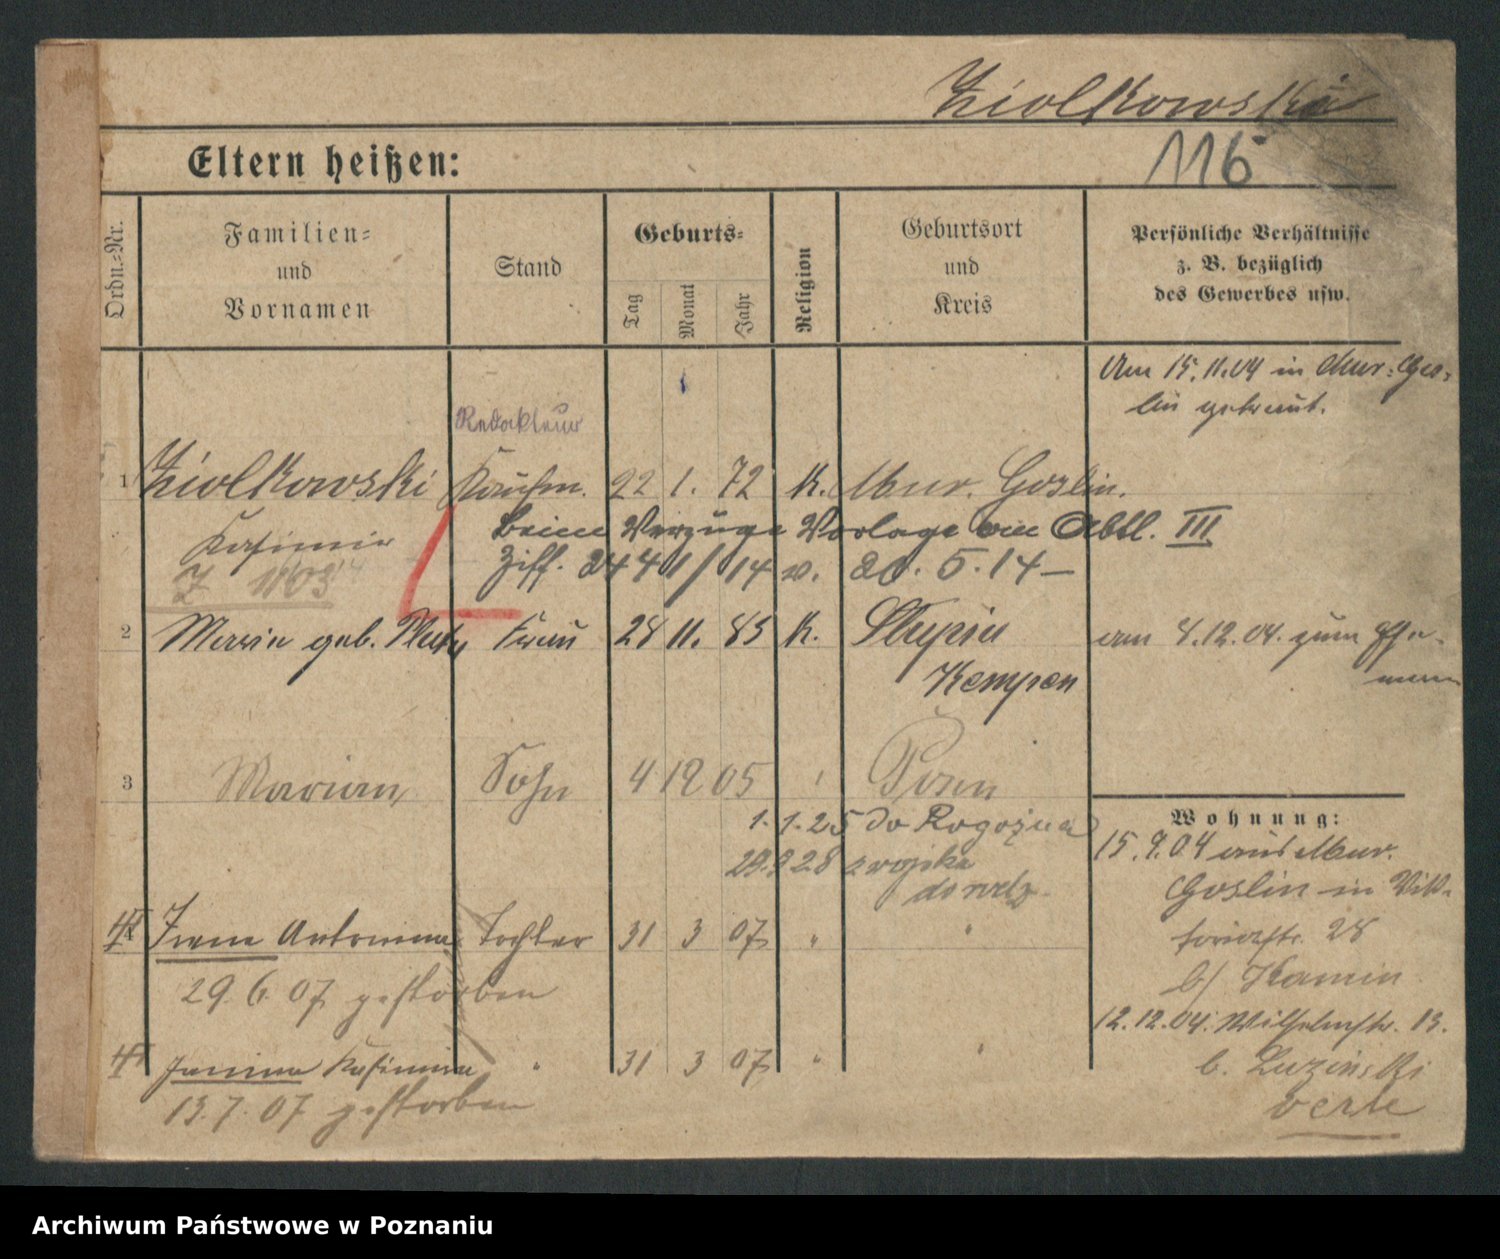 Ziolkowski
116
Eltern heißen:
Ordn.-Nr.
Familien-
und
Vornamen
Stand
Geburts-
Tag
Monat
Jahr
Religion
Geburtsort
und
Kreis
Persönliche Verhältnisse
z. B. bezüglich
des Gewerbes usw.
Am 15.11.04 in Mur: Gos-
lin getraut.
Redakteur
1 Ziolkowski Kaufm. 22 1. 72 K. Mur. Goslin.
Kasimir
beim Verzuge Vorlage an Abtl. III
Ziff. 2441/14 v. 20.5.14
2 Maria geb. Frau 28 11. 85 K.
Kempen
am 8.12.04. zum Ehe-
mann
3 Marian Sohn 4 12 05 " Posen
1.1.25 do Rogoźna
28 z wojska
Wohnung:
15.9.04 aus Mur.
Goslin in Vik-
toriastr. 28
b/ Kamin
4 Irena Antonina Tochter 31 3 07 " "
29.6.07 gestorben
12.12.04. Wilhelmstr. 13.
b. Luzinski
Janina Kasimira " 31 3 07 " "
13.7.07 gestorben
verte
Archiwum Państwowe w Poznaniu